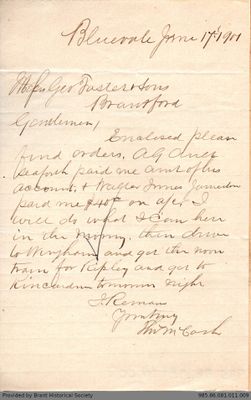 Bluevale June 17th 1901
Messrs Geo Foster & Sons
Brantford
Gentlemen,
Enclosed please
find orders, AG
Seaforth paid me amt of his
account, & Walter Innes Jamestown
paid me on a/c I
will do what I can here
in the morning then drive
to Wingham and get the noon
train for Ripley and get to
Kincardine tomorrow night
I Remain
Yours truly
McCosh
Provided by Brant Historical Society
985.66.081.011.009